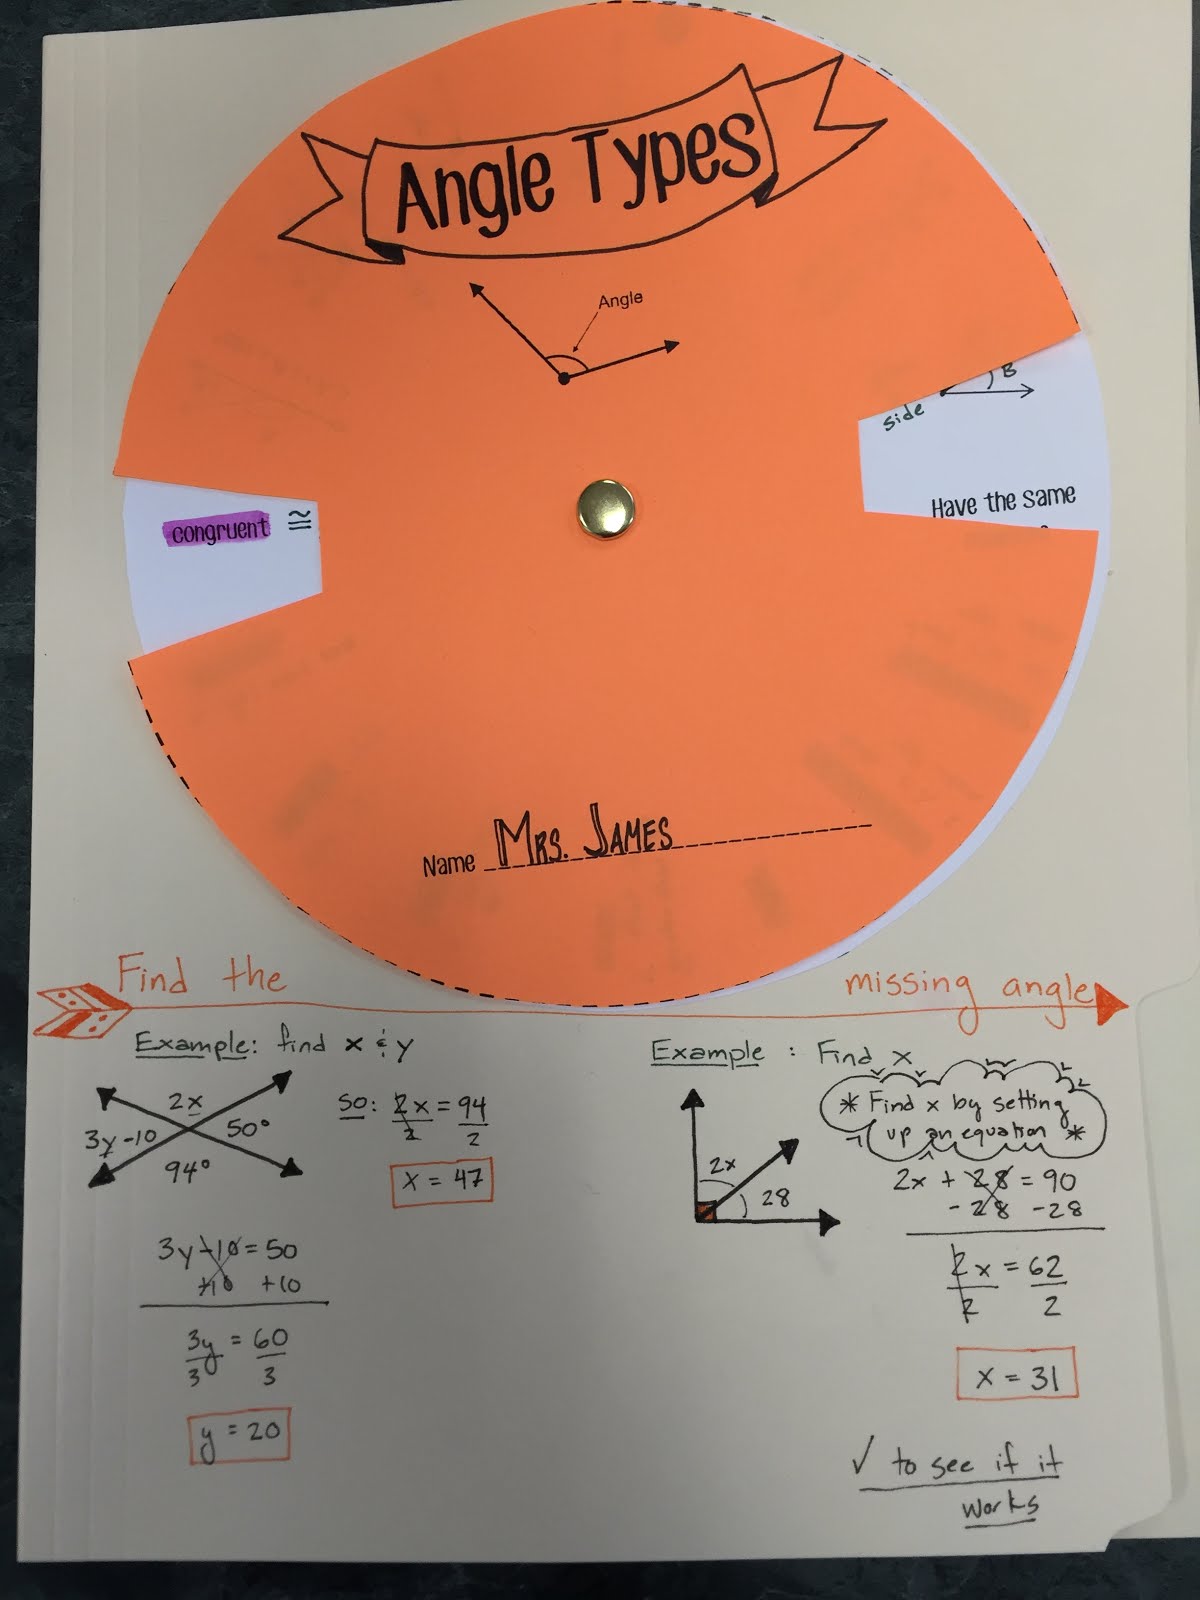 Angle Types
Angle
B
side
congruent ≅
Have the same
Name Mrs. James
Find the missing angle
Example: find x & y
2x
3y-10
50°
94°
so: 2x = 94
2 2
x = 47
3y-10 = 50
+10 +10
3y = 60
3 3
y = 20
Example : Find x
* Find x by setting
up an equation *
2x
28
2x + 28 = 90
-28 -28
2x = 62
2 2
x = 31
✓ to see if it
works